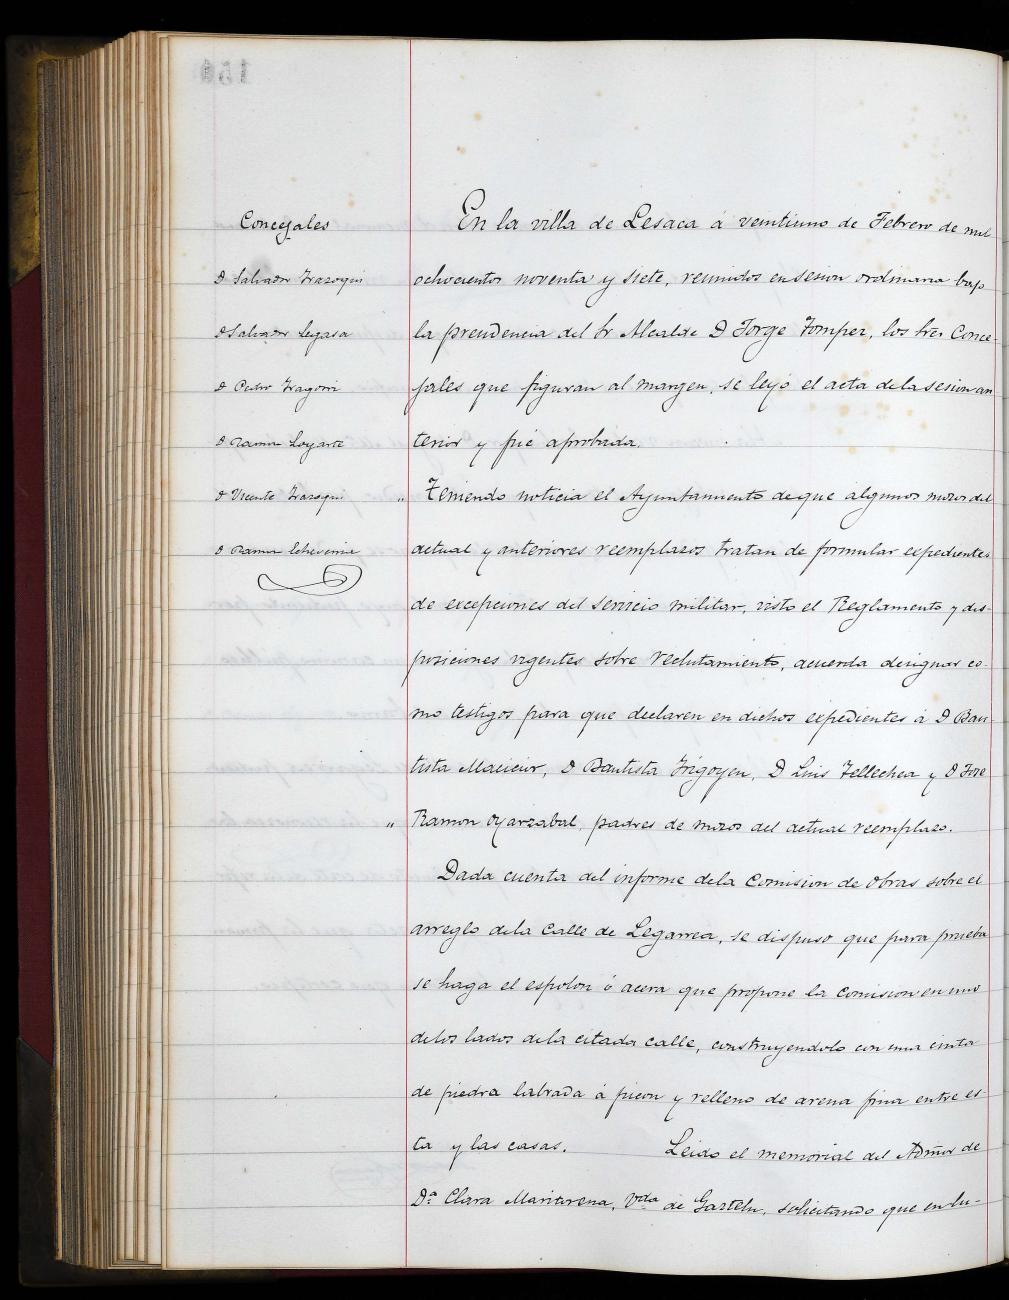 Concejales
D Salvador Irazoqui
D Salvador Legasa
D Pedro Iragorri
D Ramon Loyarte
D Vicente Irazoqui
D Ramon Echeverria
En la villa de Lesaca á veintiuno de Febrero de mil
ochocientos noventa y siete, reunidos en sesion ordinaria bajo
la presidencia del Sr Alcalde D Jorge Tompes, los Sres Conce-
jales que figuran al margen, se leyó el acta de la sesion an
terior y fué aprobada.
" Teniendo noticia el Ayuntamiento de que algunos mozos del
actual y anteriores reemplazos tratan de formular expedientes
de excepciones del servicio militar, visto el Reglamento y dis-
posiciones vigentes sobre reclutamiento, acuerda designar co-
mo testigos para que declaren en dichos expedientes á D Bau-
tista Macicior, D Bautista Irigoyen, D Luis Tellechea y D Jose
" Ramon Oyarzabal, padres de mozos del actual reemplazo.
Dada cuenta del informe dela Comision de Obras sobre el
arreglo dela Calle de Legarrea, se dispuso que para prueba
se haga el espolon ó acera que propone la Comision en uno
delos lados dela citada calle, construyendolo con una cinta
de piedra labrada á picon y relleno de arena fina entre es-
ta y las casas. Leido el memorial del Admor de
Dª Clara Maritorena, Vda de Gaztelu, solicitando que en lu-